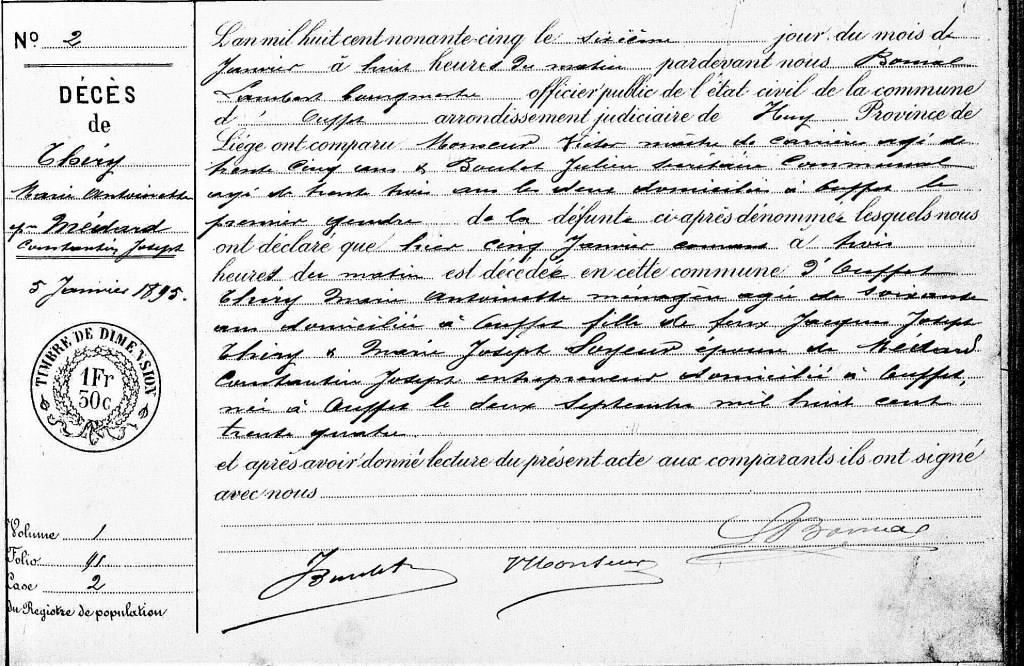 Nº 2
DÉCÈS
de
Théry
Marie Antoinette
Médard
Constantin Joseph
5 Janvier 1895.
TIMBRE DE DIMENSION
1Fr
30c
Volume 1
Folio 91
Case 2
du Registre de population
L'an mil huit cent nonante-cinq le sixième jour du mois de
Janvier à huit heures du matin pardevant nous Bonial
Lambert bourgmestre officier public de l'état civil de la commune
d' Ouffet arrondissement judiciaire de Huy Province de
Liége ont comparu Monseur Victor maître de carrière agé de
trente cinq ans & Boulet Julien secrétaire Communal
agé de trente trois ans les deux domiciliés à Ouffet le
premier gendre de la défunte ci-après dénommée lesquels nous
ont déclaré que hier cinq Janvier courant à trois
heures du matin est décédée en cette commune d'Ouffet
Théry Marie Antoinette ménagère agée de soixante
ans domiciliée à Ouffet fille de feux Jacques Joseph
Théry & Marie Joseph Loyeux épouse de Médard
Constantin Joseph entrepreneur domicilié à Ouffet,
née à Ouffet le deux Septembre mil huit cent
trente quatre.
et après avoir donné lecture du présent acte aux comparants ils ont signé
avec nous
L Bonial
JBoulet VMonseur